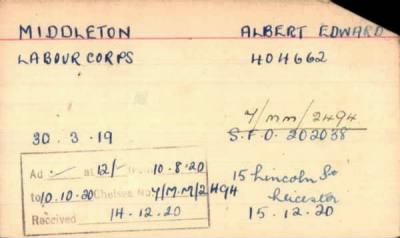 MIDDLETON ALBERT EDWARD
LABOUR CORPS 404662
7/MM/2494
30.3.19 S.F.O. 202038
Ad at 12/- from 10.8.20
to 10.10.20 Chelsea No 7/M.M/2494
Received 14.12.20
15 Lincoln St
Leicester
15.12.20